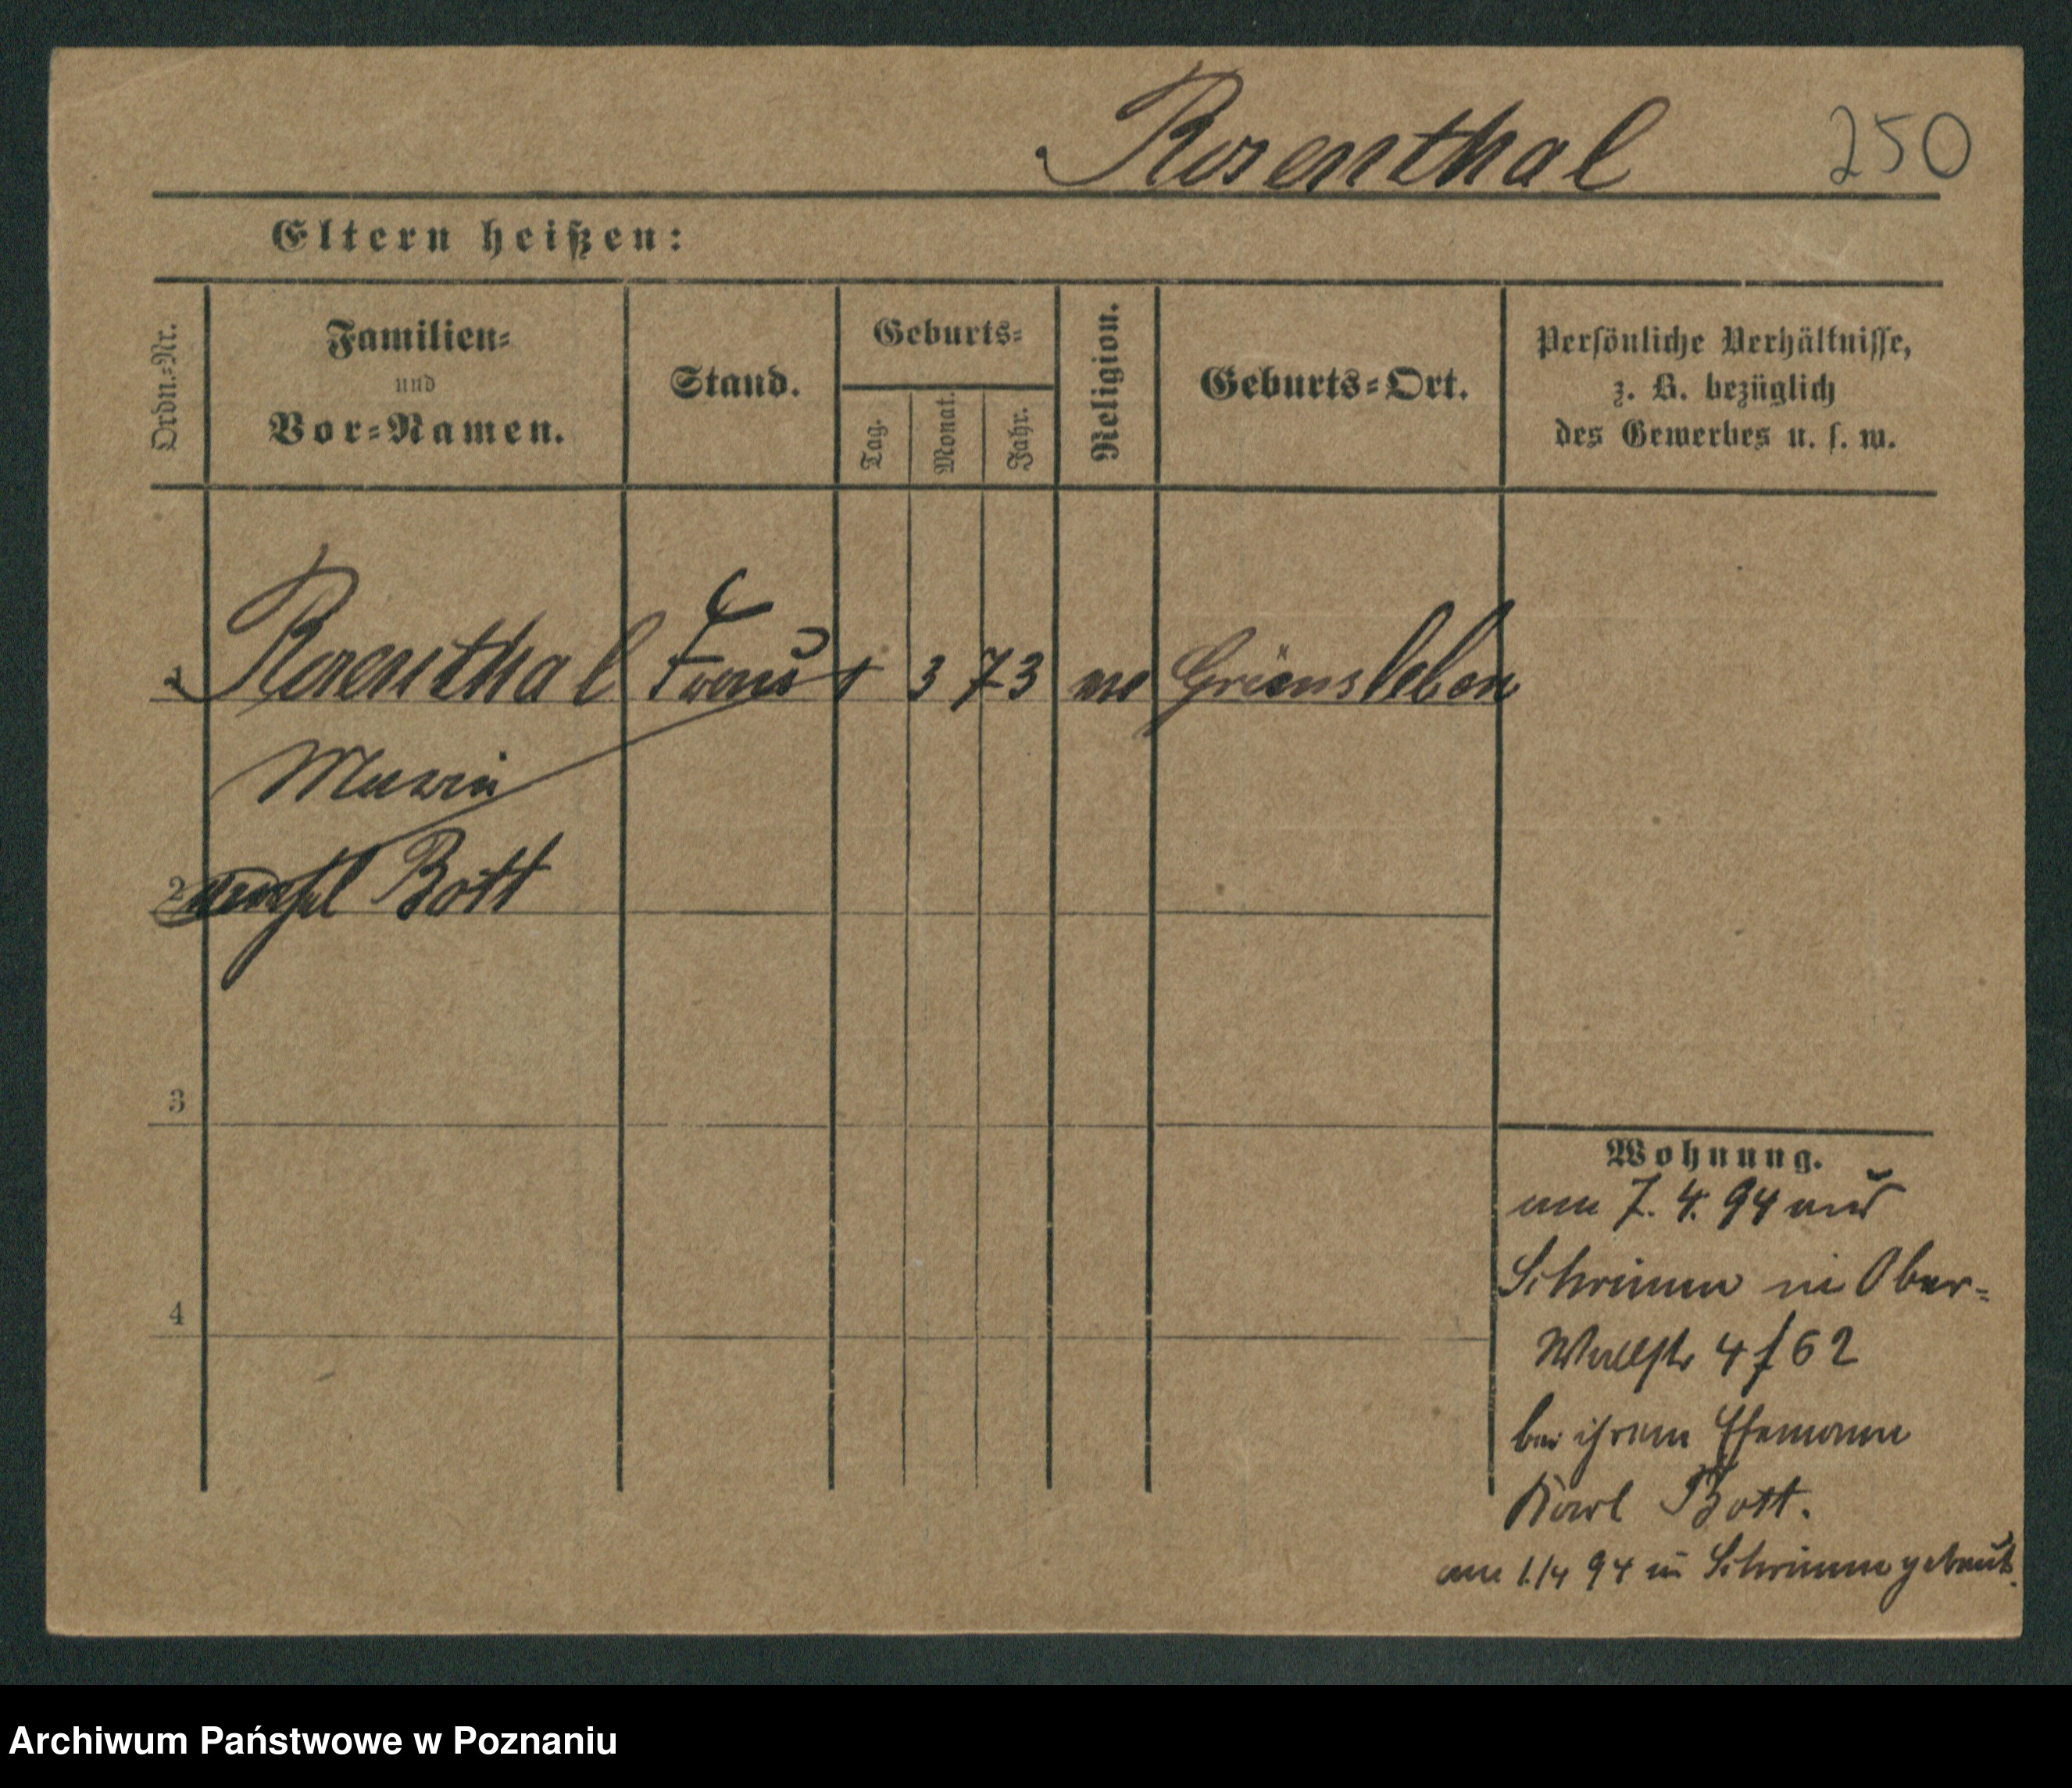 Rosenthal 250
Eltern heißen:
Ordn.-Nr.
Familien-
und
Vor-Namen.
Stand.
Geburts-
Tag.
Monat.
Jahr.
Religion.
Geburts-Ort.
Persönliche Verhältnisse,
z. B. bezüglich
des Gewerbes u. s. w.
1 Rosenthal Frau 1 3 73 Grünsleben
Maria
2 Bott
3
4
Wohnung.
am 7. 4. 94 aus
Schrimm in Ober-
Wallstr 4 f 62
bei ihrem Ehemann
Karl Bott.
am 1/4 94 in Schrimm getraut.
Archiwum Państwowe w Poznaniu